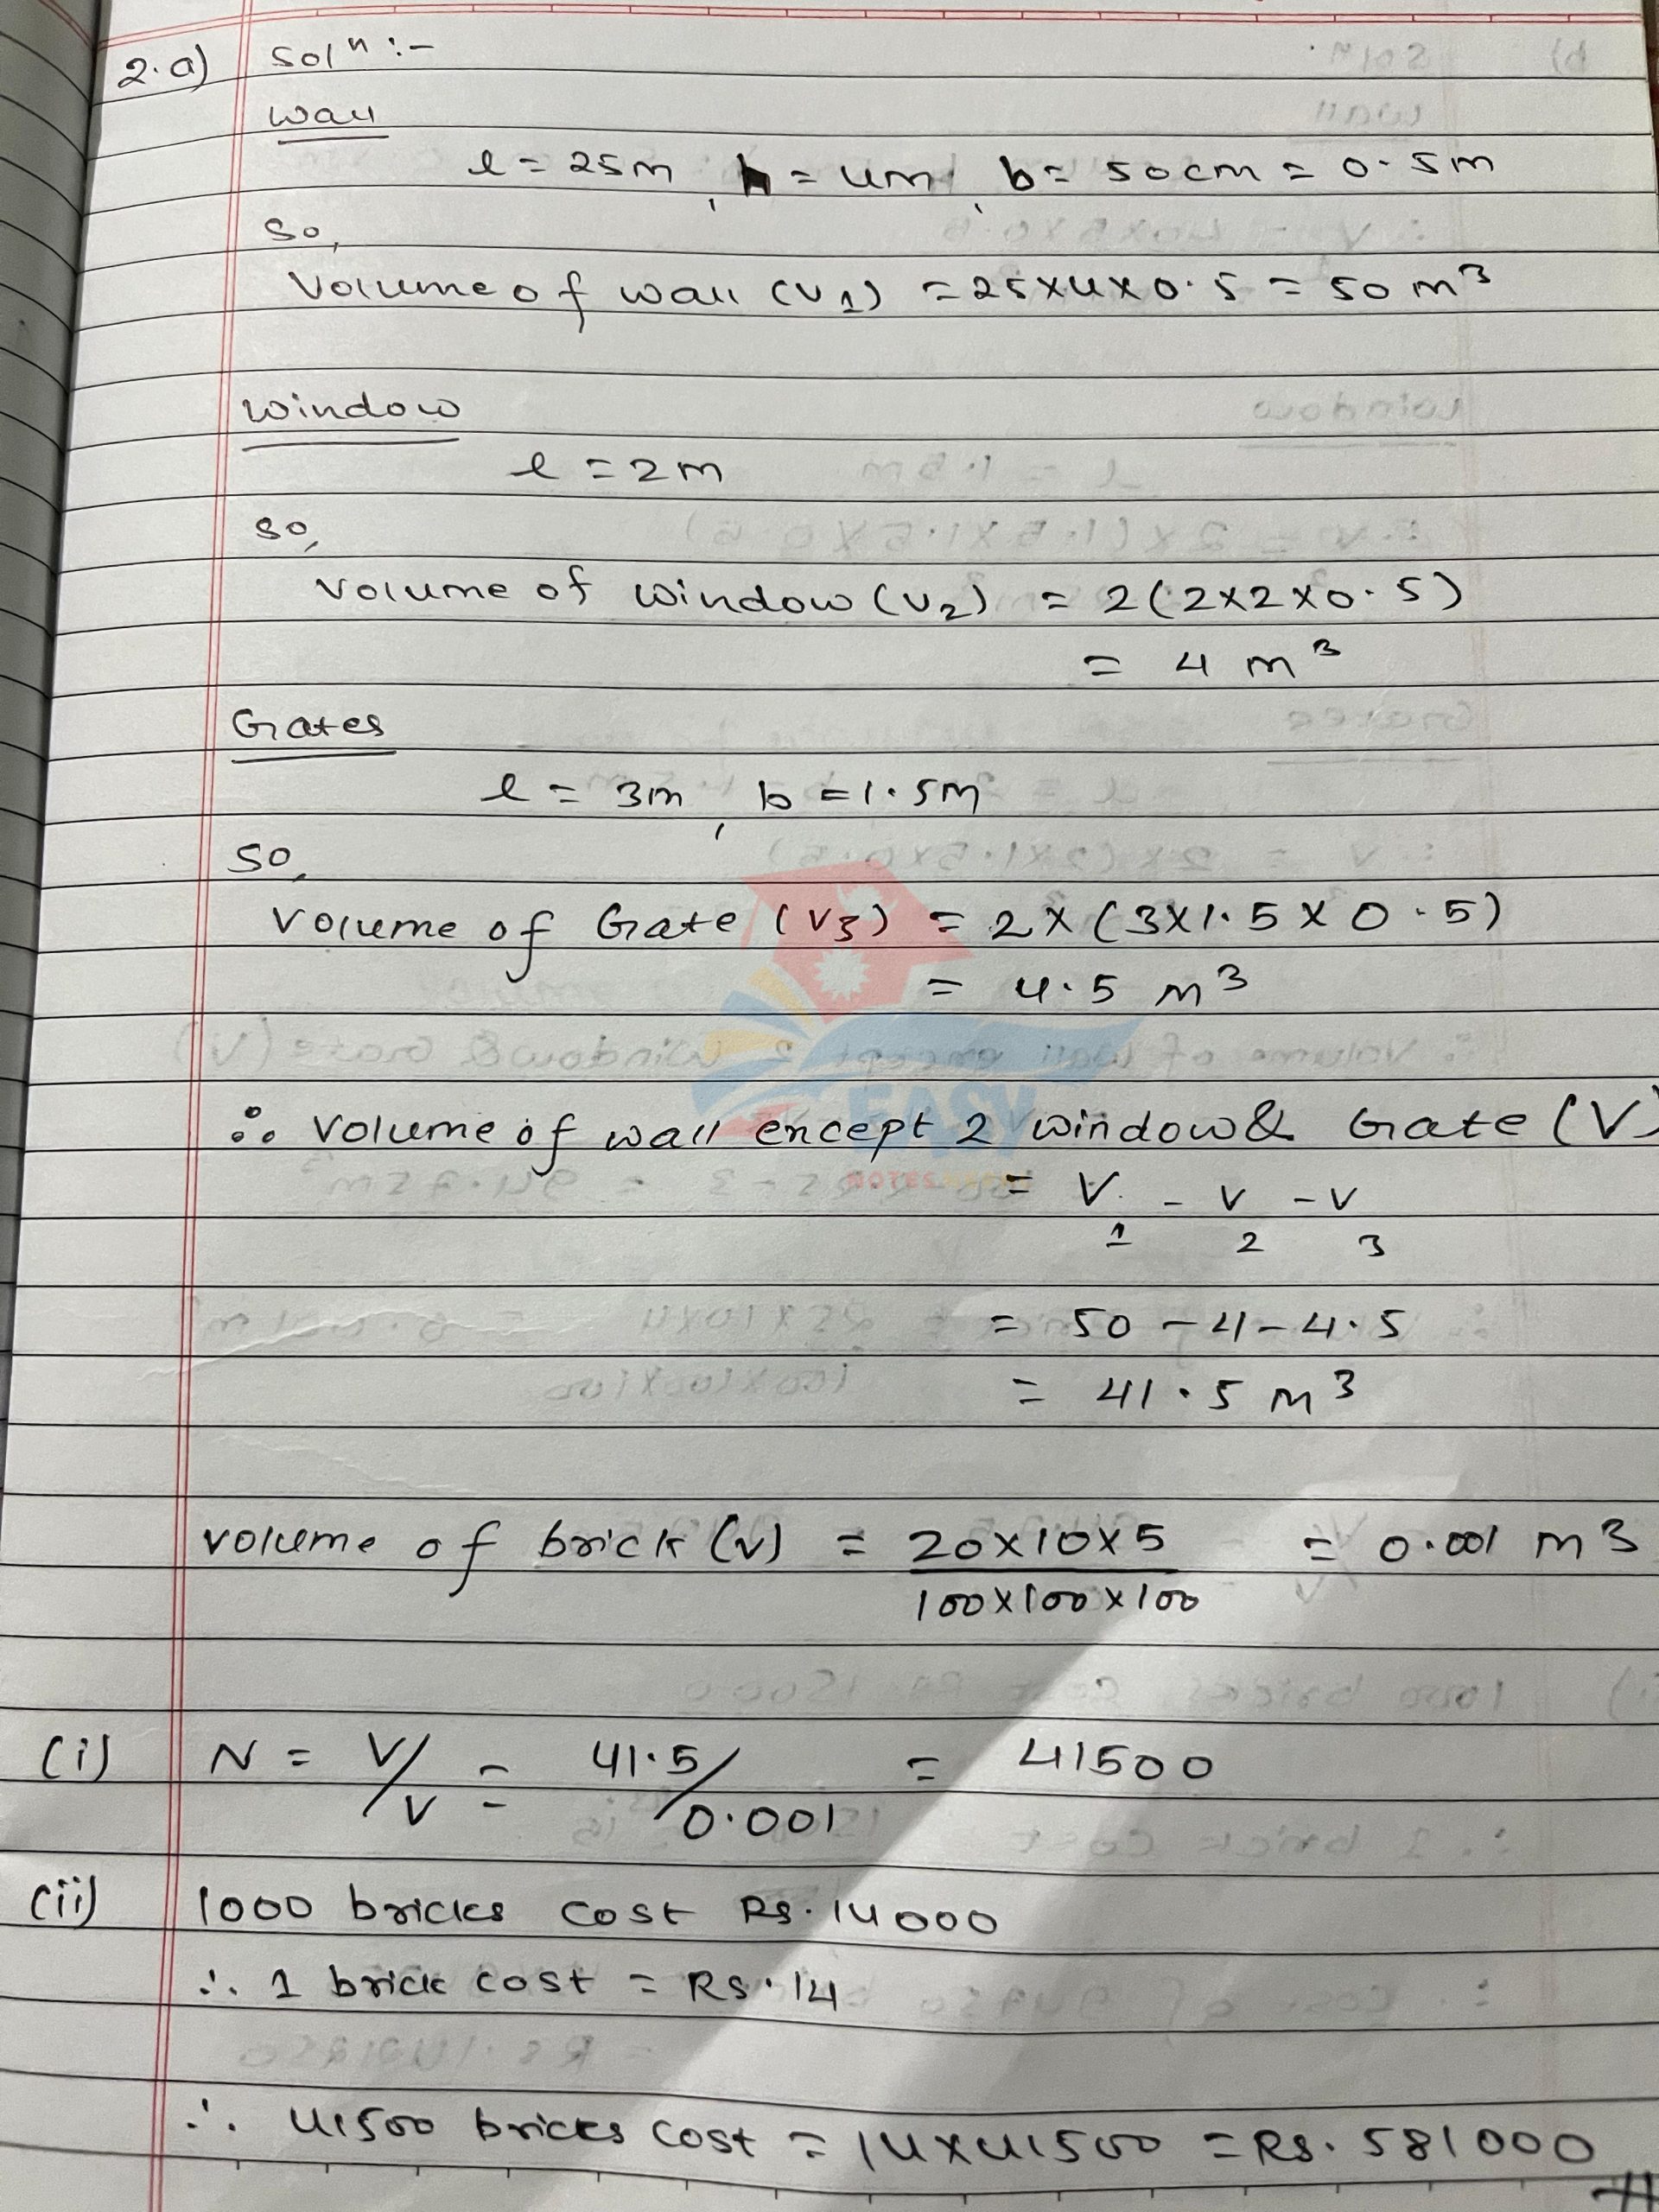 2.a) Solⁿ :-
Wall
l = 25m, h = 4m, b = 50cm = 0.5m
So,
Volume of wall (V1) = 25×4×0.5 = 50 m³
Window
l = 2m
So,
Volume of window (V2) = 2(2×2×0.5)
= 4 m³
Gates
l = 3m, b = 1.5m
So,
Volume of Gate (V3) = 2×(3×1.5×0.5)
= 4.5 m³
EASY
∴ Volume of wall except 2 window & Gate (V)
NOTES
= V1 - V2 - V3
= 50 - 4 - 4.5
= 41.5 m³
Volume of brick (v) = 20×10×5 / 100×100×100 = 0.001 m³
(i) N = V/v = 41.5/0.001 = 41500
(ii) 1000 bricks cost Rs. 14000
∴ 1 brick cost = Rs. 14
∴ 41500 bricks cost = 14×41500 = Rs. 581000